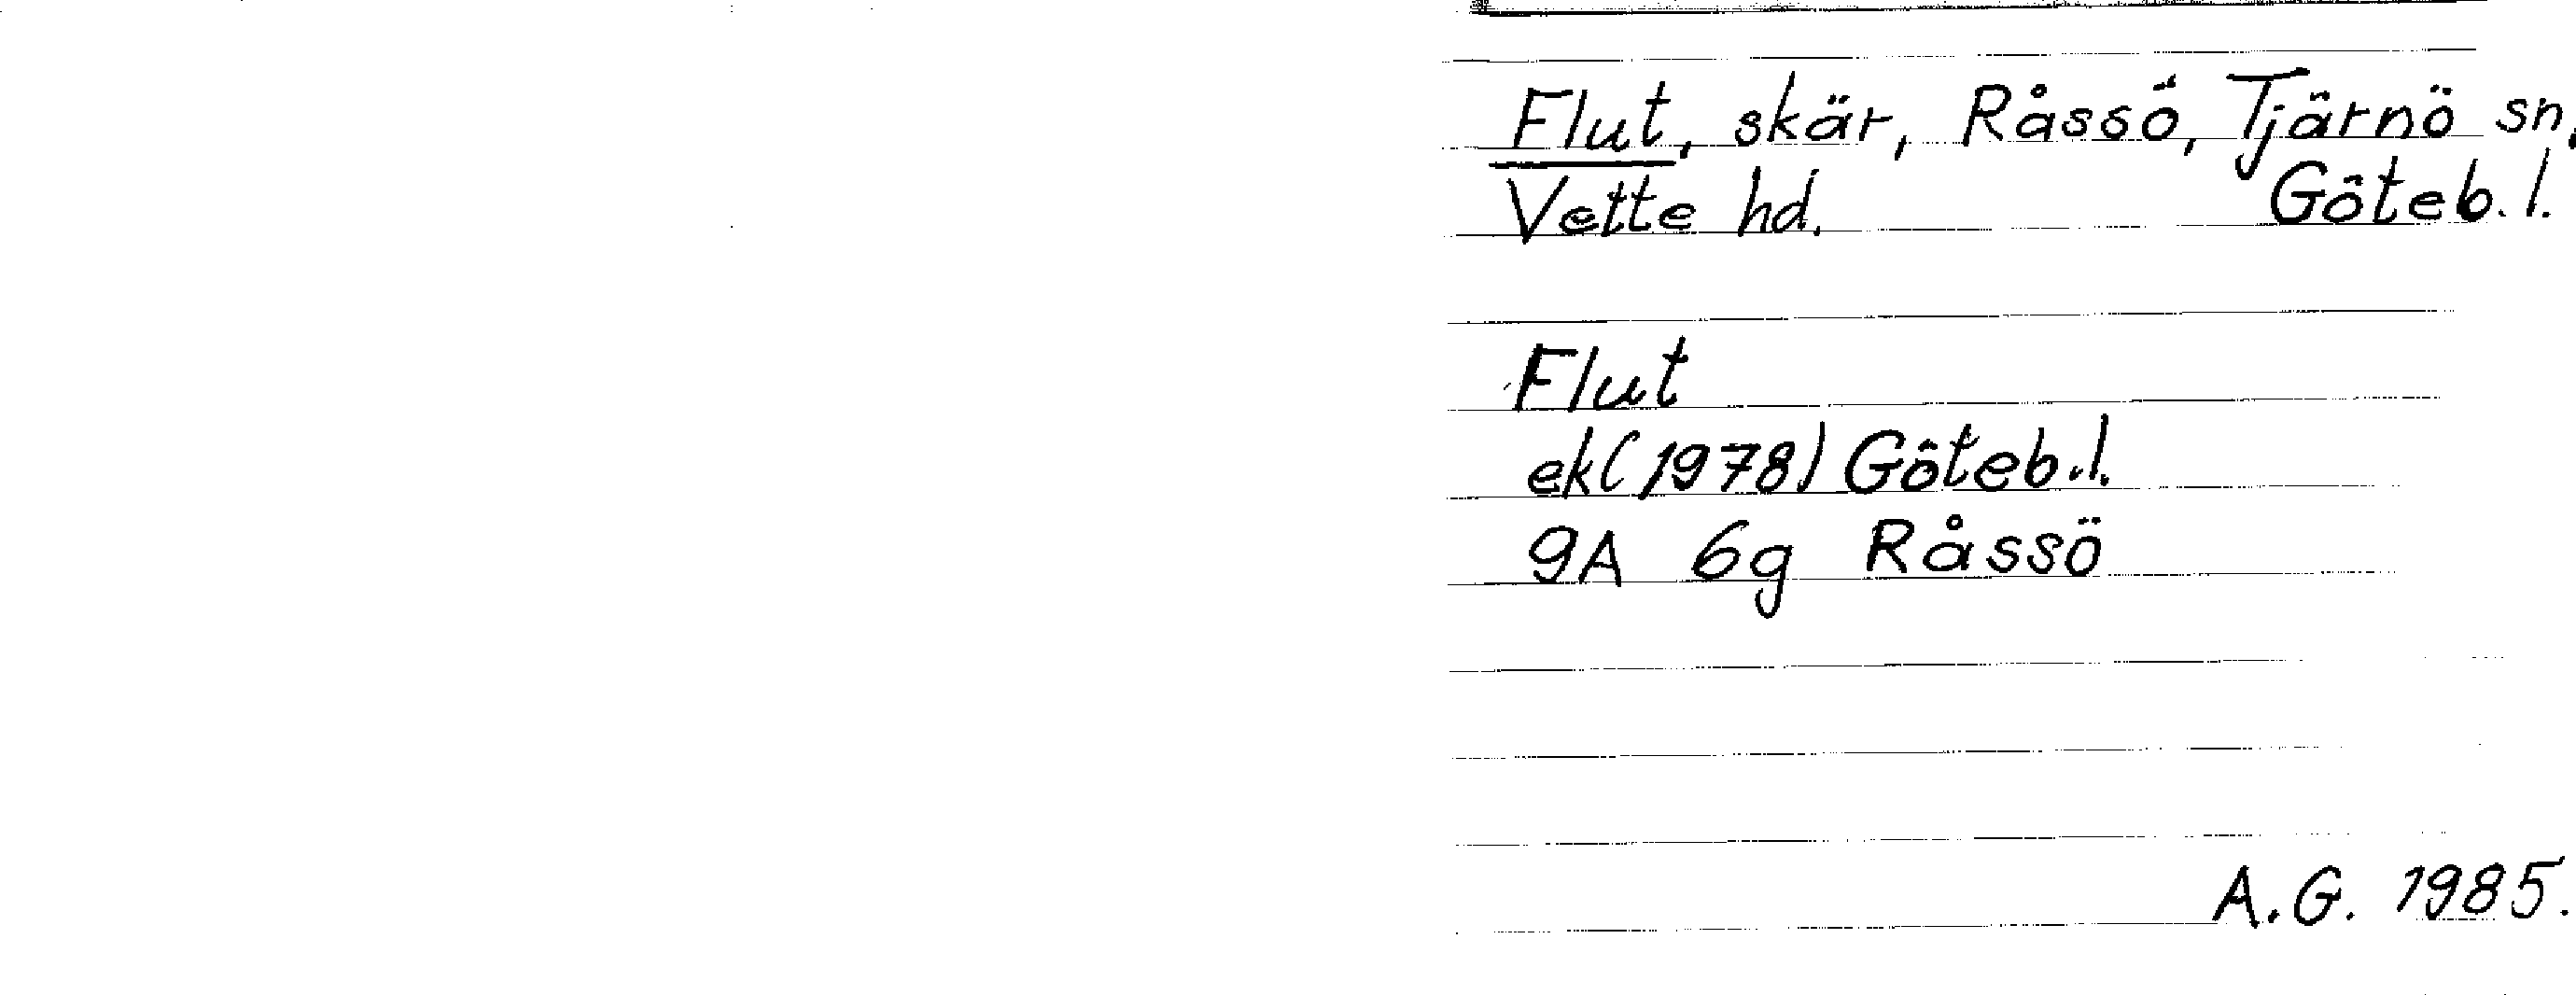 Flut, skär, Råssö, Tjärnö sn.
Vette hd. Göteb.l.
Flut
ek(1978) Göteb.l.
9A 6g Råssö
A.G. 1985.